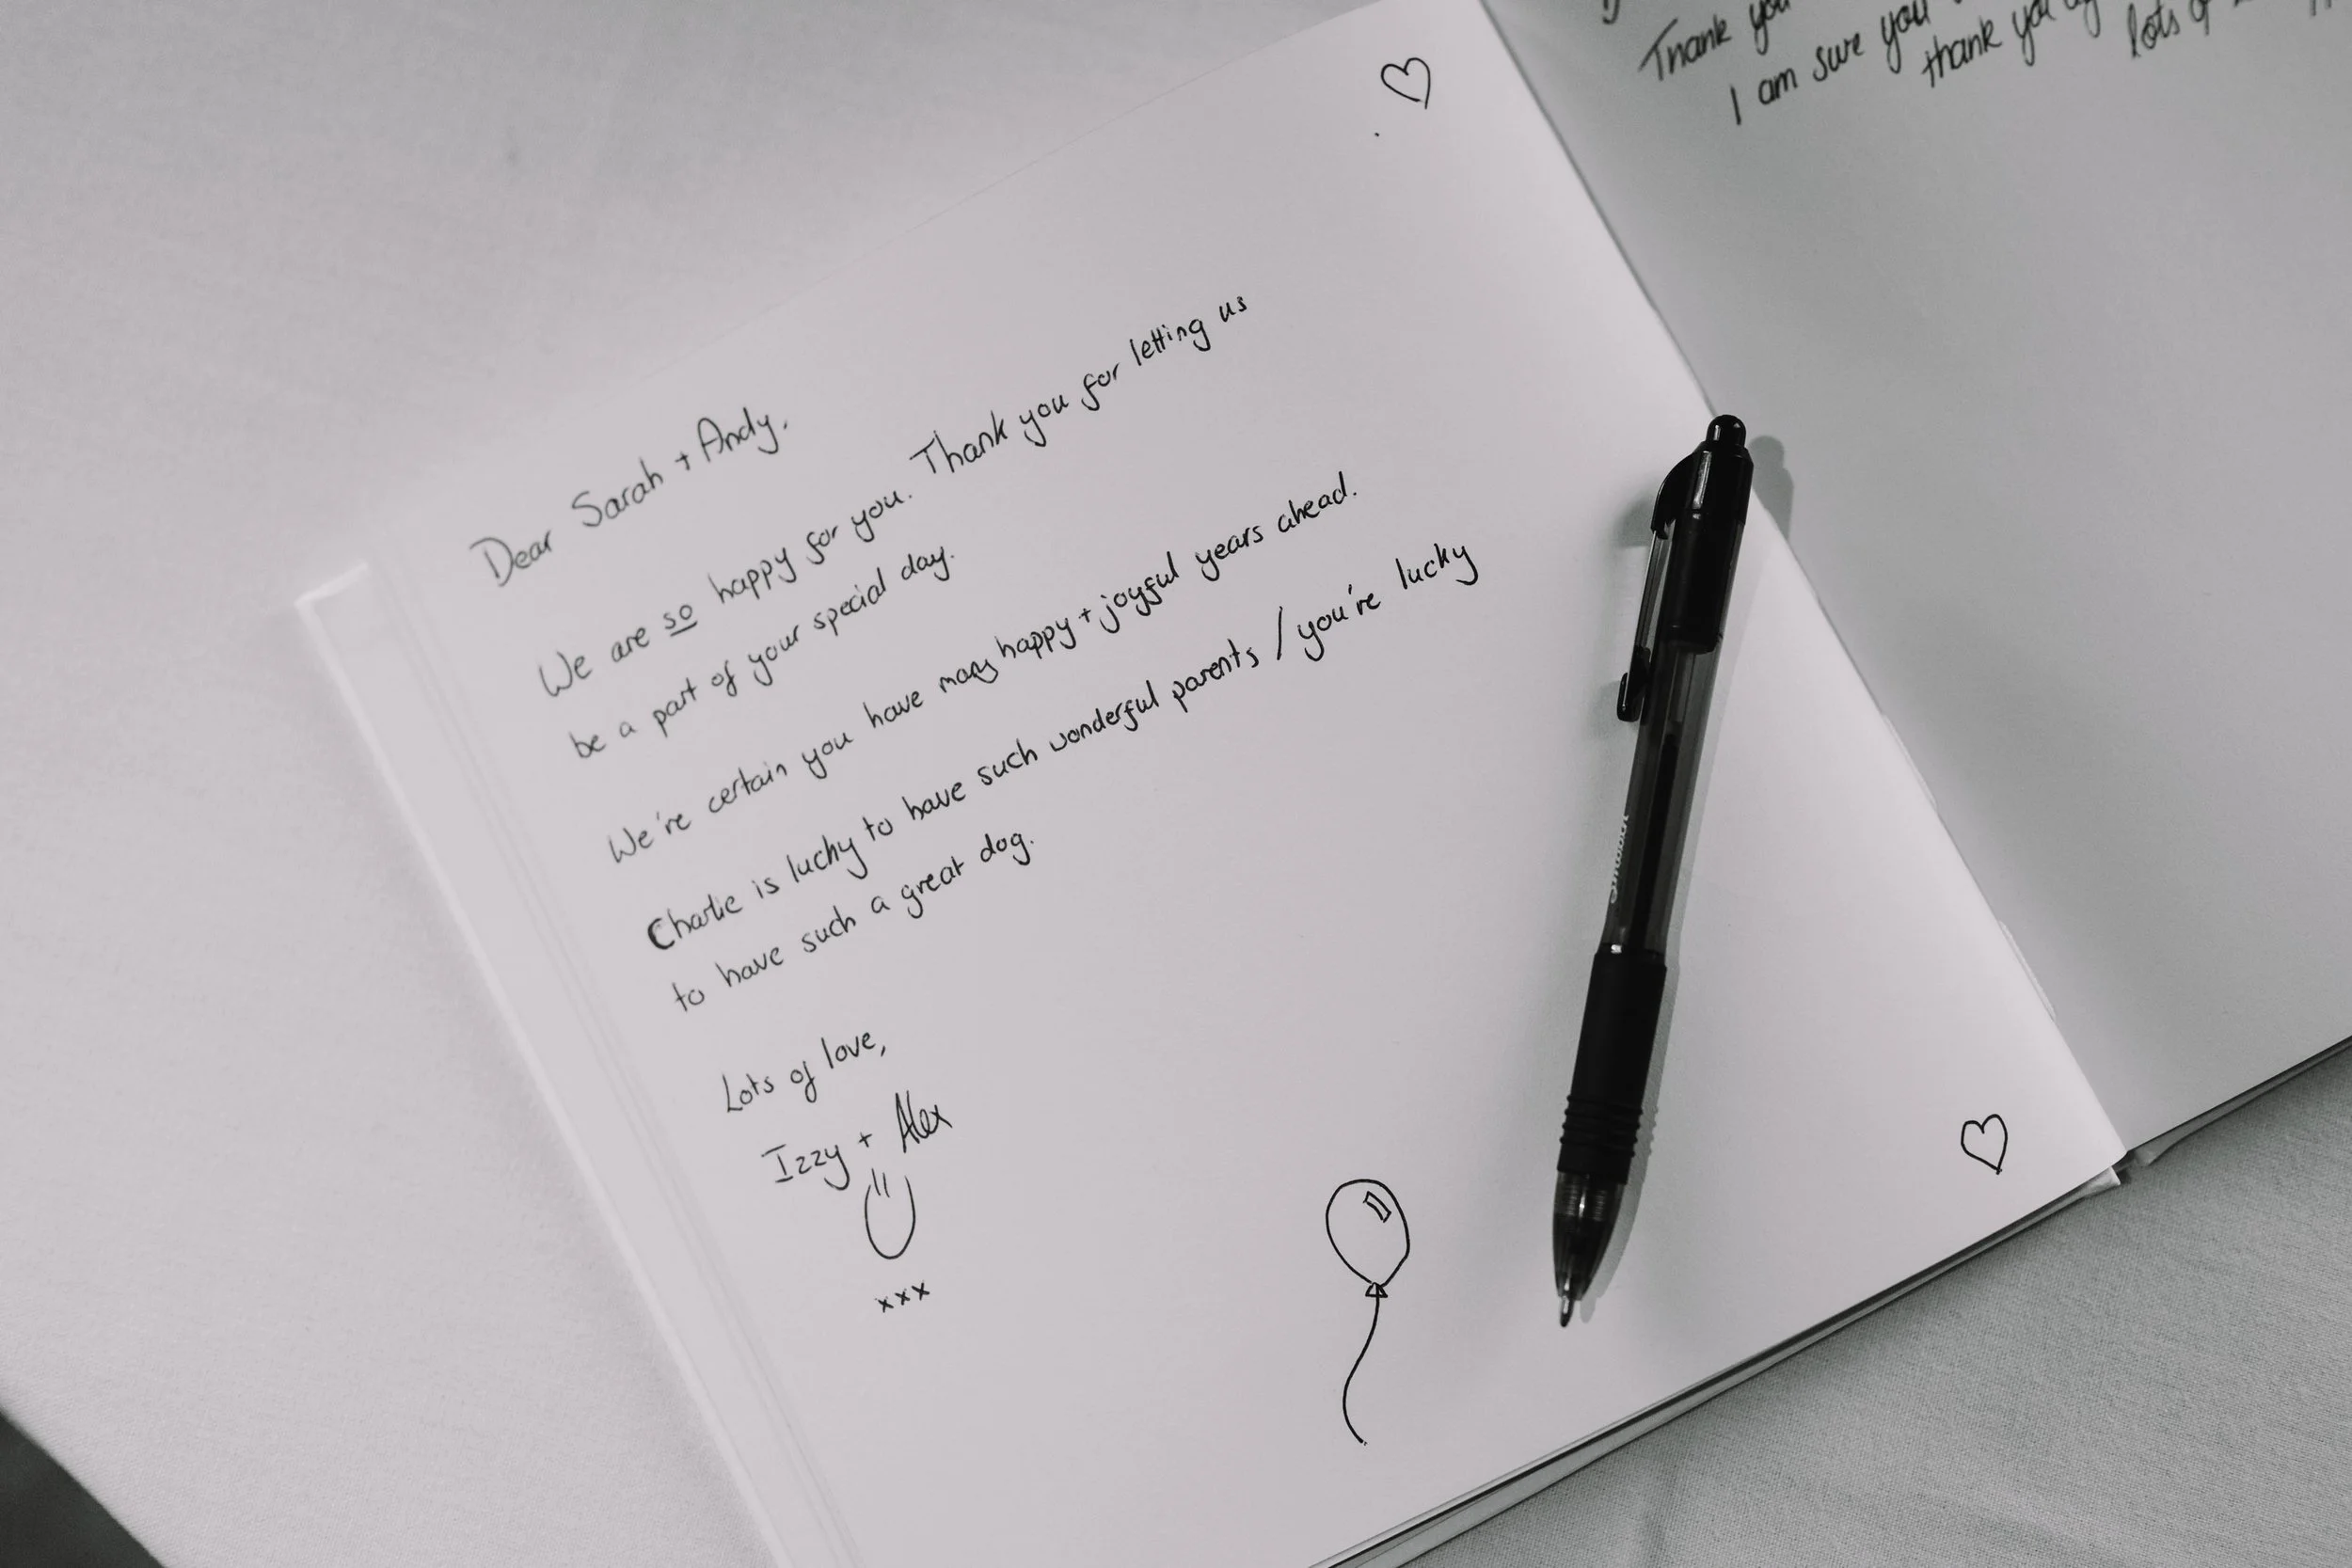 Dear Sarah + Andy,
We are so happy for you. Thank you for letting us
be a part of your special day.
We're certain you have many happy + joyful years ahead.
Charlie is lucky to have such wonderful parents / you're lucky
to have such a great dog.
Lots of love,
Izzy + Alex
xxx
Thank you
I am sure you
thank you
lots of